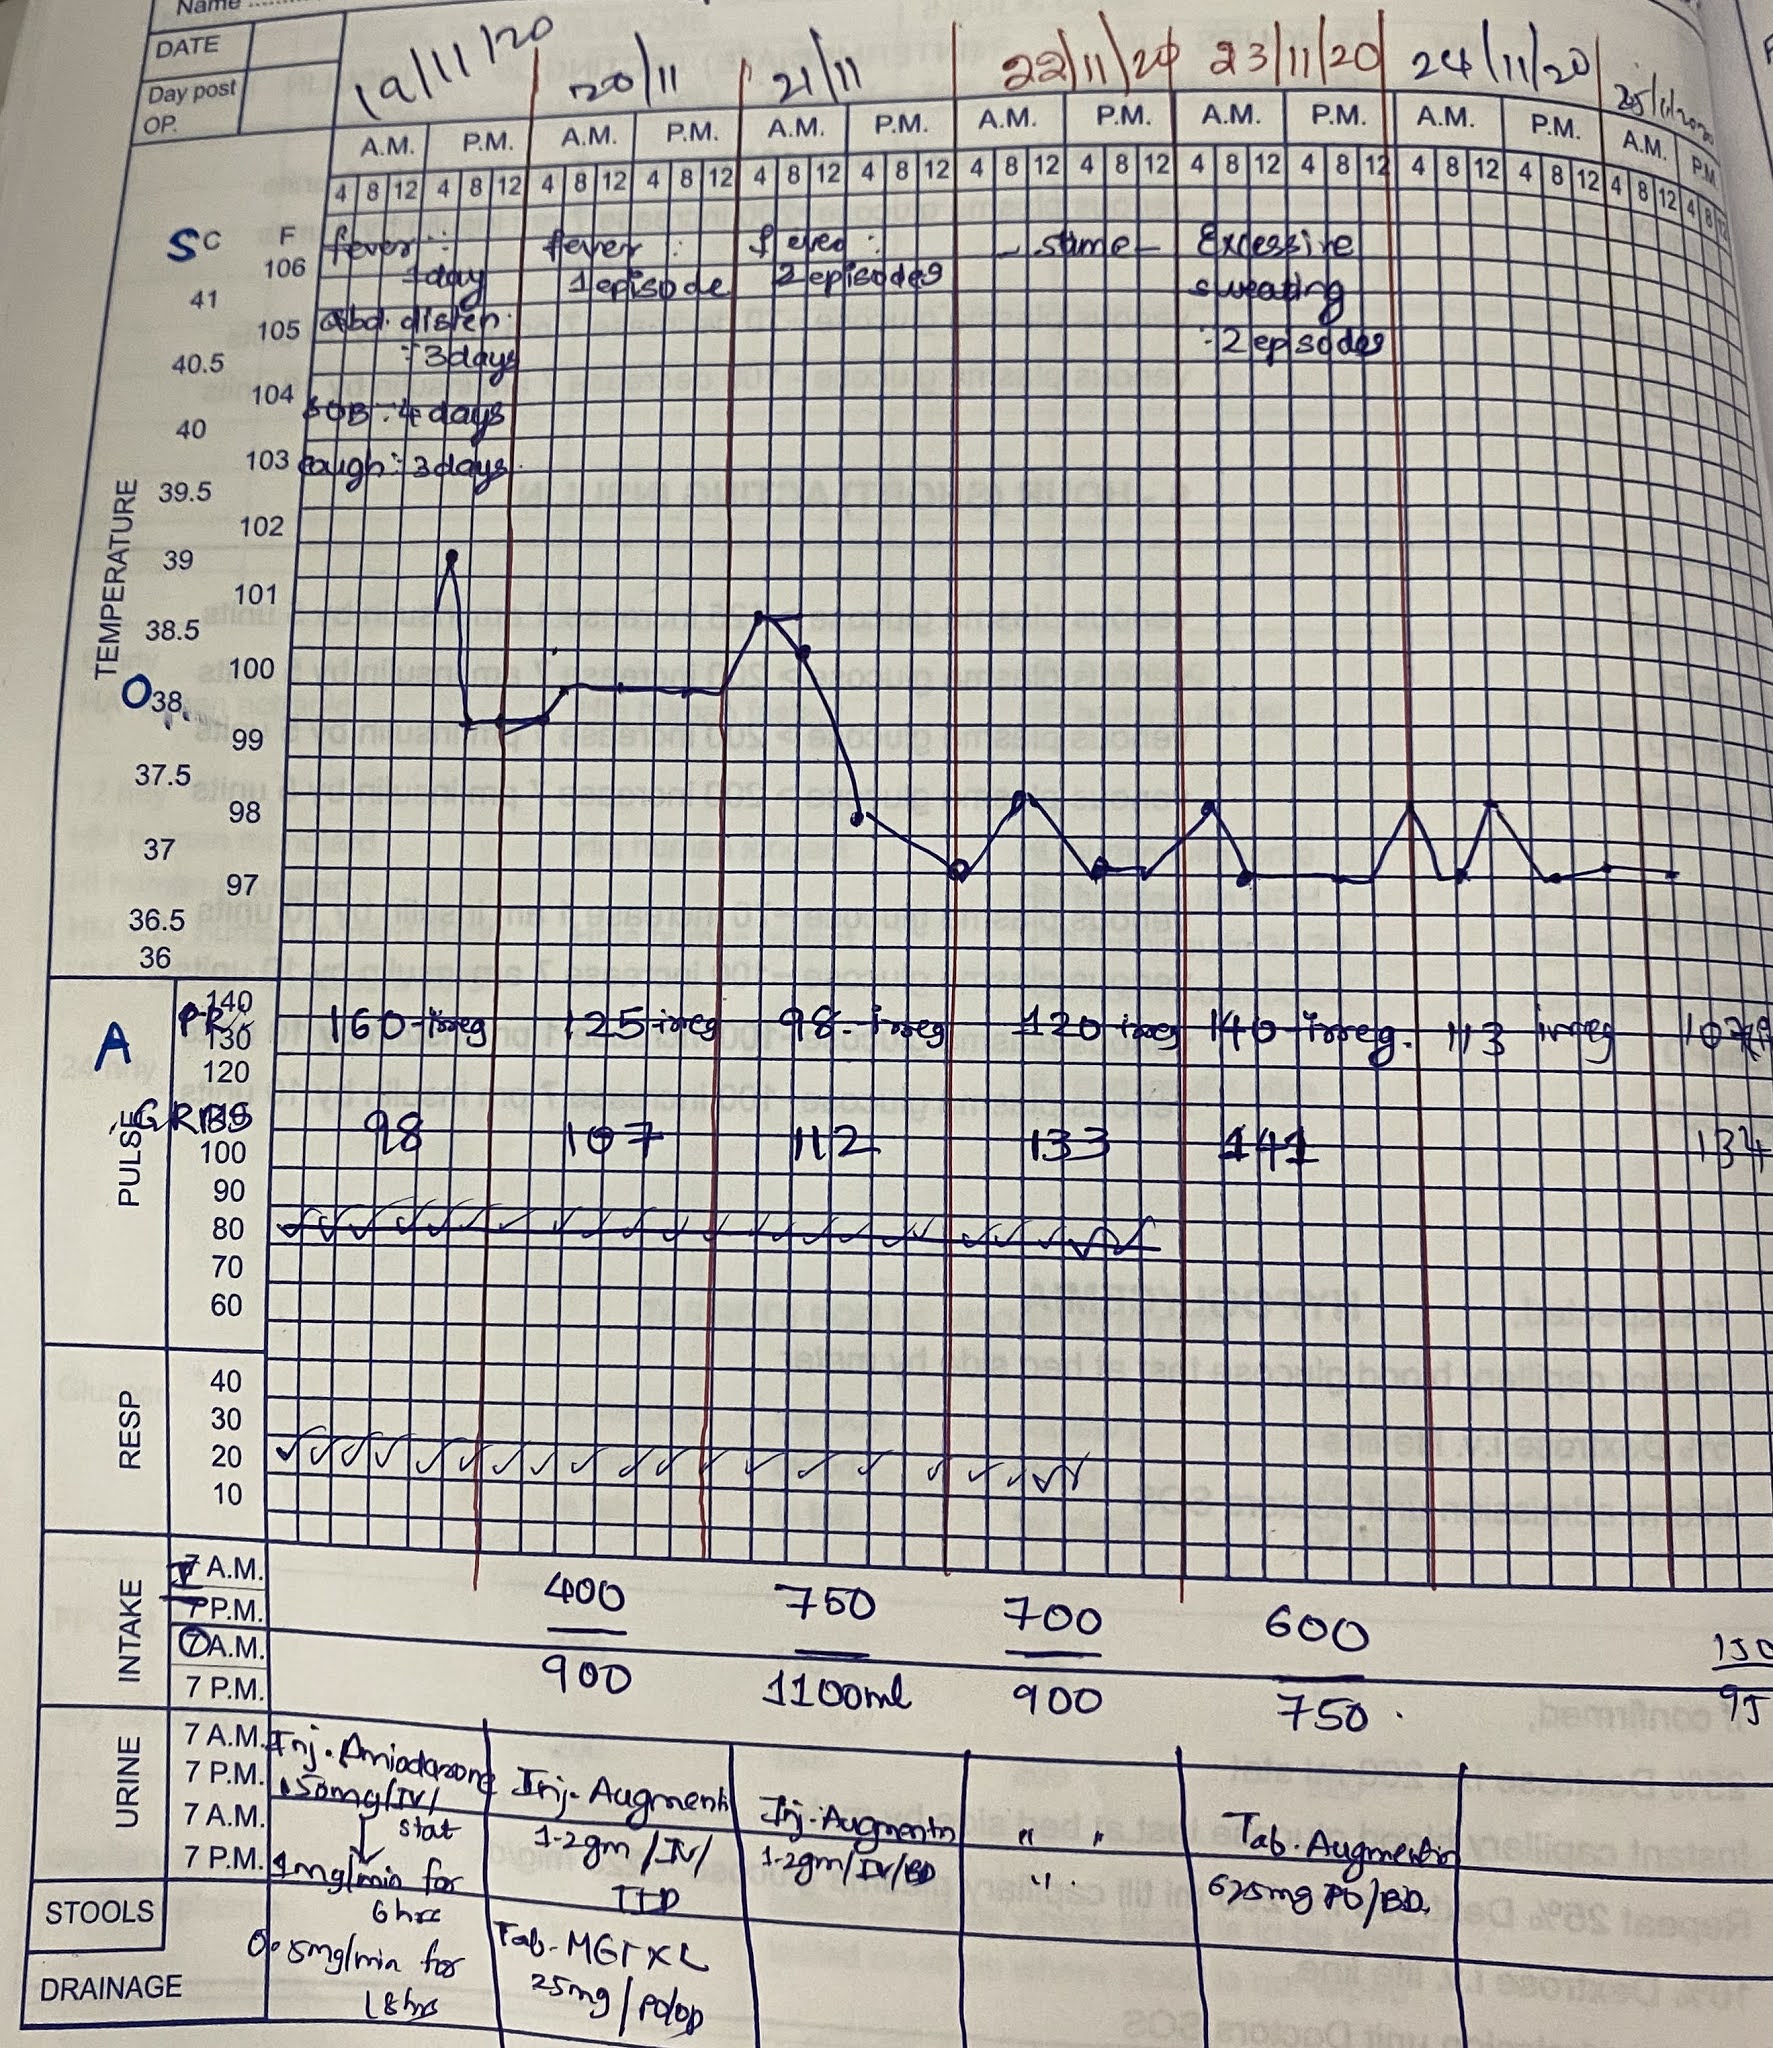 Name
DATE
Day post OP.
19/11/20 20/11 21/11 22/11/20 23/11/20 24/11/20 25/11/2020
A.M. P.M. A.M. P.M. A.M. P.M. A.M. P.M. A.M. P.M. A.M. P.M. A.M. P.M.
4 8 12 4 8 12 4 8 12 4 8 12 4 8 12 4 8 12 4 8 12 4 8 12 4 8 12 4 8 12 4 8 12 4 8 12 4 8 12 4 8 12
S C F
fever : fever : fever : - same - Excessive
1 day 1 episode 2 episodes sweating
: 2 episodes
Abd. disten:
: 3 days
SOB : 4 days
cough : 3 days.
TEMPERATURE
106
41
105
40.5
104
40
103
39.5
102
39
101
38.5
100
O
38
99
37.5
98
37
97
36.5
36
A
PULSE
140
PR 160-irreg 125-irreg 98-irreg 120 irreg 140-irreg. 113 irreg 107
130
120
GRBS 98 107 112 133 141 134
100
90
80
70
60
RESP
40
30
20
10
INTAKE
I 7 A.M.
7 P.M.
O 7 A.M.
7 P.M.
400 750 700 600
900 1100ml 900 750.
URINE
7 A.M.
7 P.M.
7 A.M.
7 P.M.
STOOLS
DRAINAGE
Inj. Amiodarone
150mg/IV/
stat
1mg/min for
6 hrs
0.5mg/min for
18 hrs
Inj. Augmentin
1.2gm/IV/
TID
Tab. MET XL
25mg/PO/OD
Inj. Augmentin
1.2gm/IV/BD
" "
".
Tab. Augmentin
625mg PO/BD.